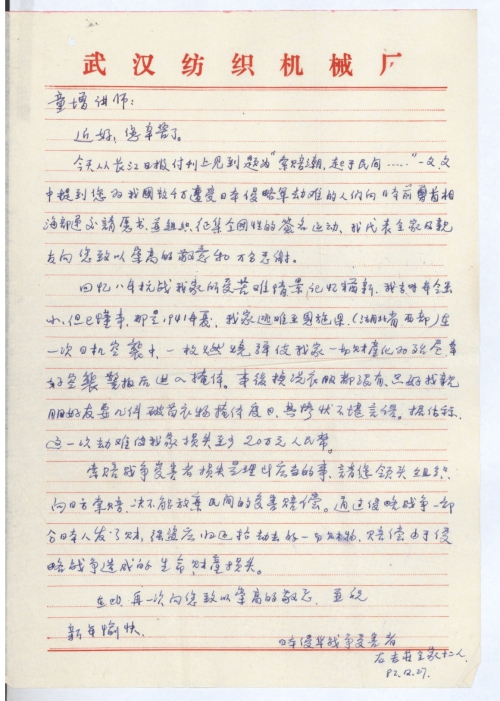 武汉纺织机械厂
童增讲师：
近好，您辛苦了。
今天从长江日报付刊上见到题为“索赔潮，起于民间……”一文，文
中提到您为我国数千万遭受日本侵略军劫难的人们向日本前首相
海部递交請愿书，並組织、征集全國性的签名运动，我代表全家及親
友向您致以崇高的敬意和万分感谢。
回忆八年抗战我家所受苦难情景记忆犹新，我当时年令虽
小，但已懂事，那是1941年夏，我家逃难至恩施遇（湖北省西部）在
一次日机空襲中，一枚燃烧弹使我家一切财產化为殆尽，幸
好空襲警报后进入掩体。事後换洗衣服都没有，只好找親
朋好友要几件破旧衣物掩体度日，悲惨状不堪言状。据估称，
这一次劫难使我家损失至少20万元人民幣。
索赔战争受害者损失是理所应当的事，請您领头组织，
向日方索赔，决不能放棄民间的受害赔偿。通过侵略战争一部
分日本人发了财，强盗应归还抢劫去的一切财物，赔偿由于侵
略战争造成的生命、财產损失。
在此，再一次向您致以崇高的敬意，並祝
新年愉快。
日本侵华战争受害者
全家十二人
92.12.27.